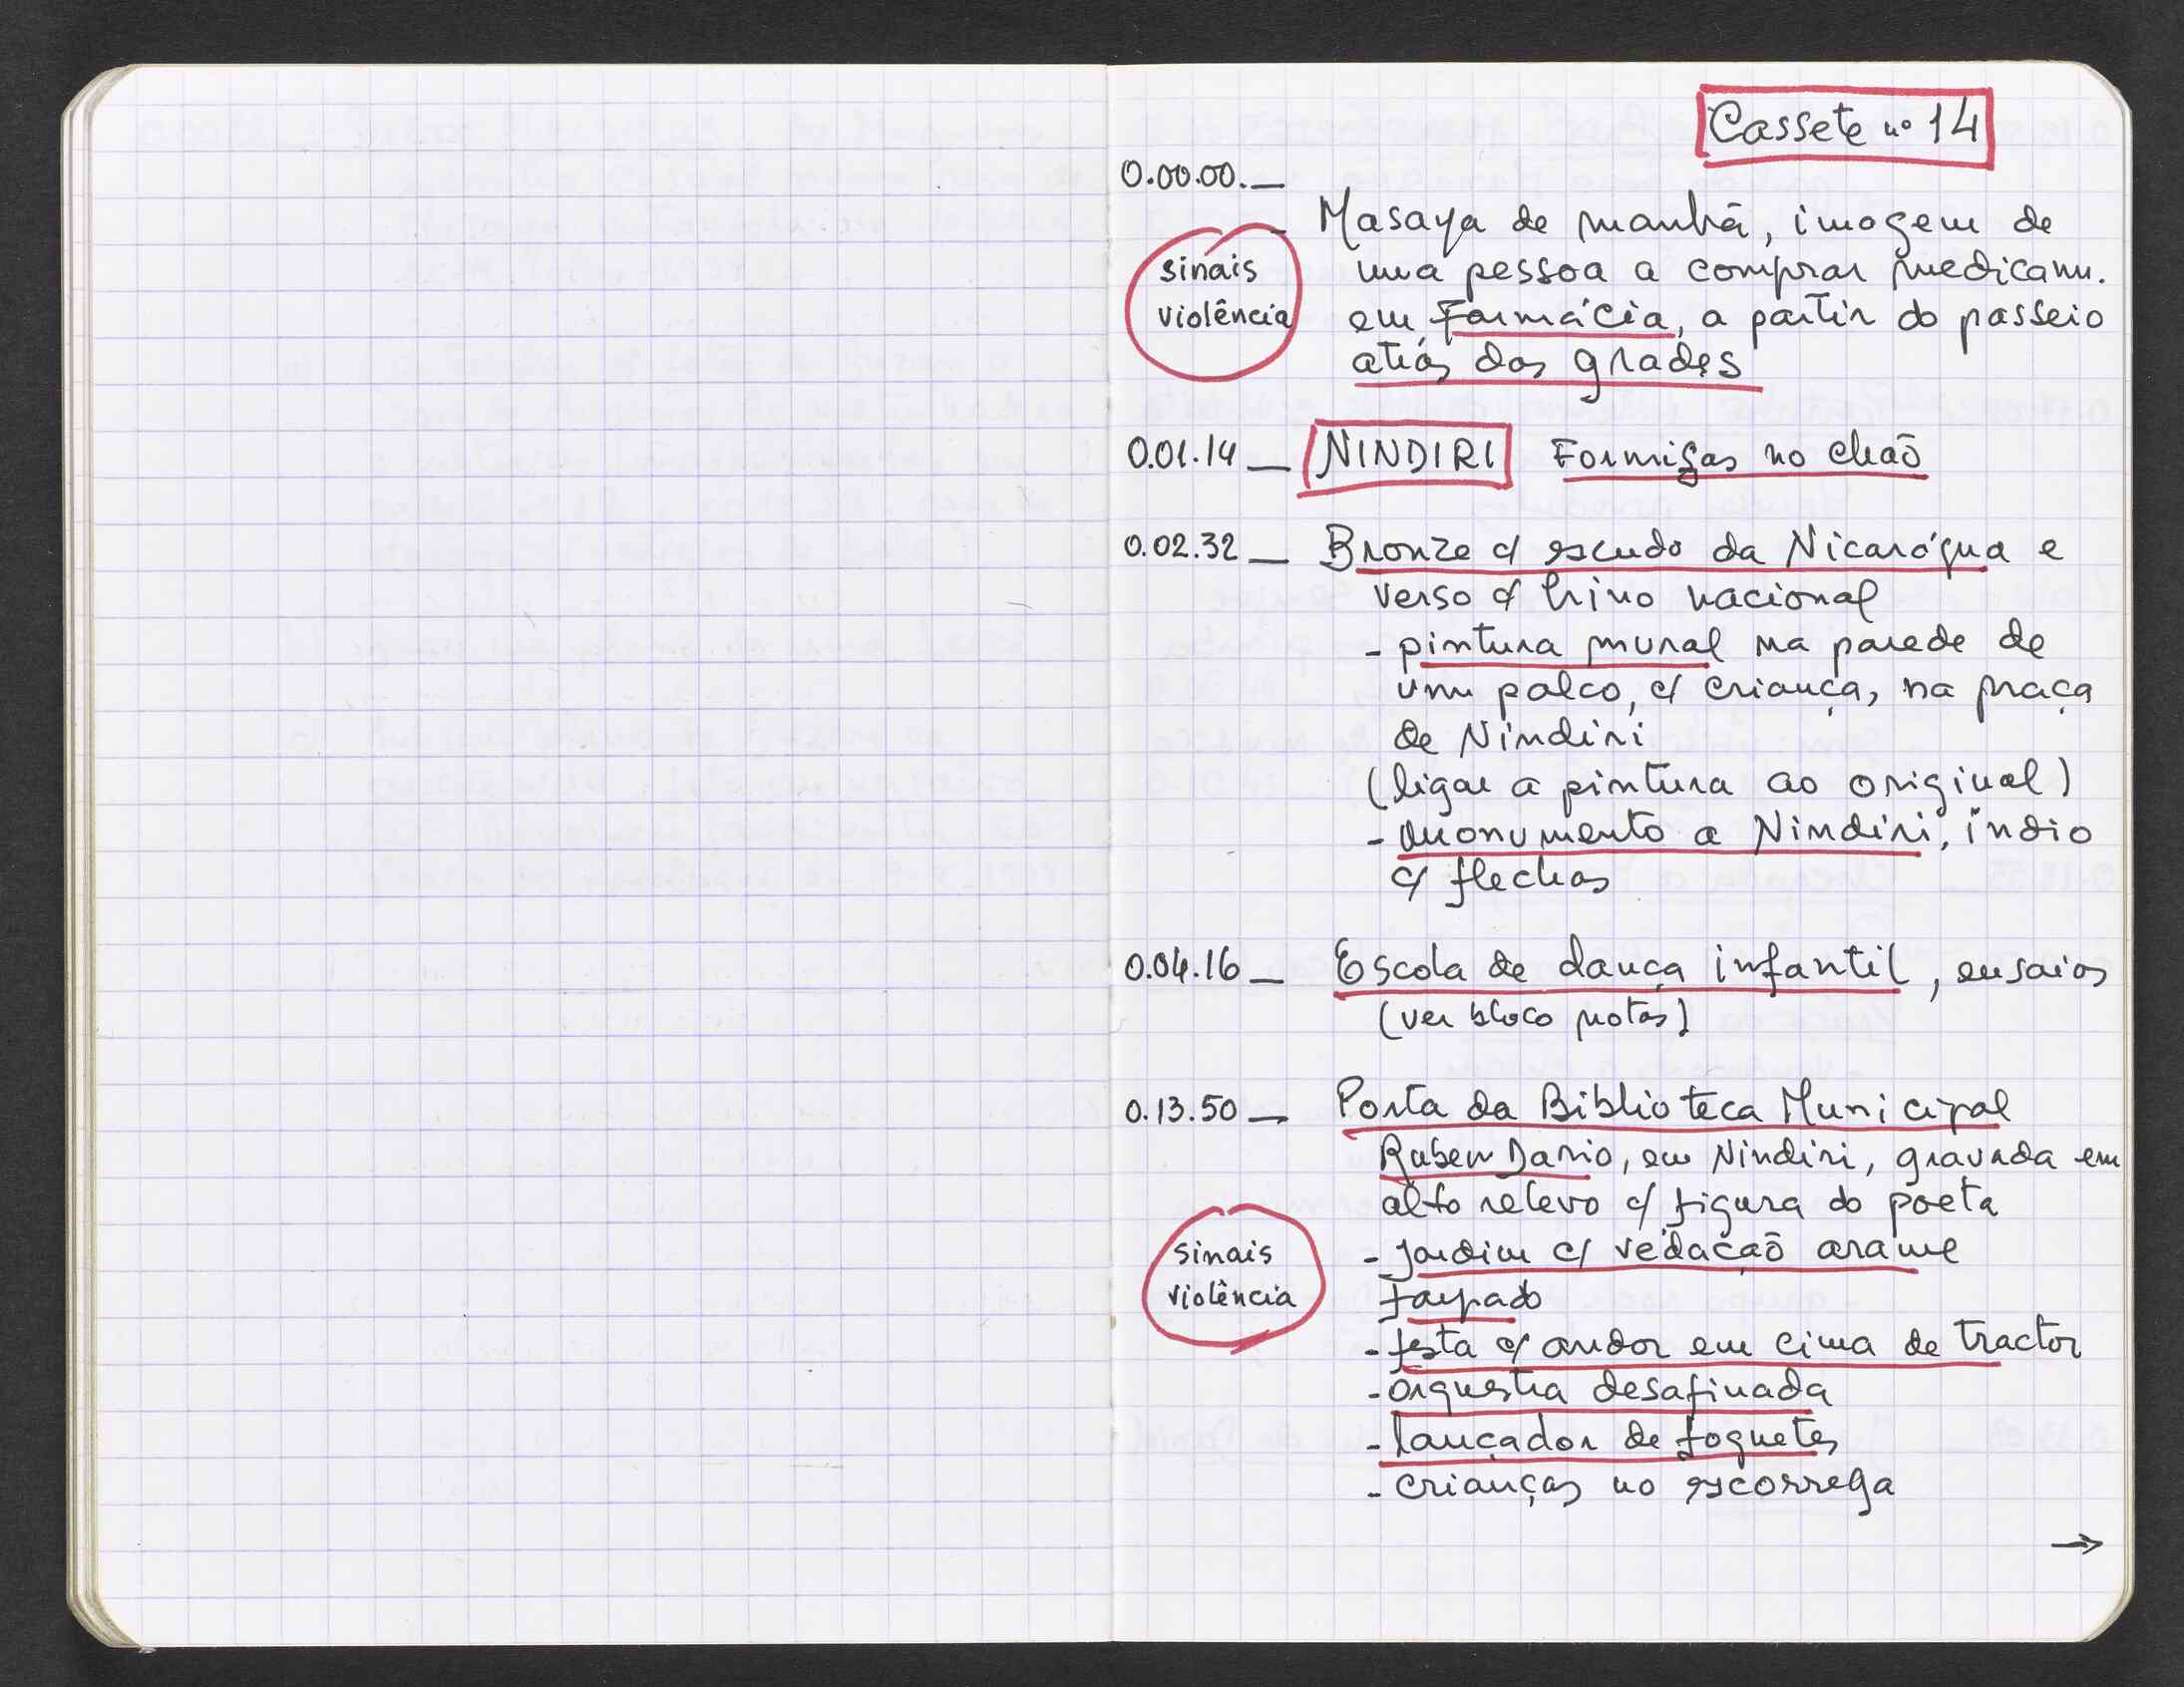 Cassete nº 14
0.00.00._
- Masaya de manhã, imagem de
sinais
violência
uma pessoa a comprar medicam.
em Farmácia, a partir do passeio
atrás das grades
0.01.14 _ NINDIRI Formigas no chão
0.02.32 _ Bronze c/ escudo da Nicarágua e
verso d/ hino nacional
- pintura mural na parede de
um palco, c/ criança, na praça
de Nindiri
(ligar a pintura ao original)
- monumento a Nindiri, índio
c/ flechas
0.04.16 _ Escola de dança infantil, ensaios
(ver bloco notas)
0.13.50 _ Porta da Biblioteca Municipal
Ruben Dario, em Nindiri, gravada em
alto relevo c/ figura do poeta
sinais
violência
- Jardim c/ vedação arame
farpado
- festa c/ andor em cima de tractor
- orquestra desafinada
- lançador de foguetes
- crianças no escorrega
→